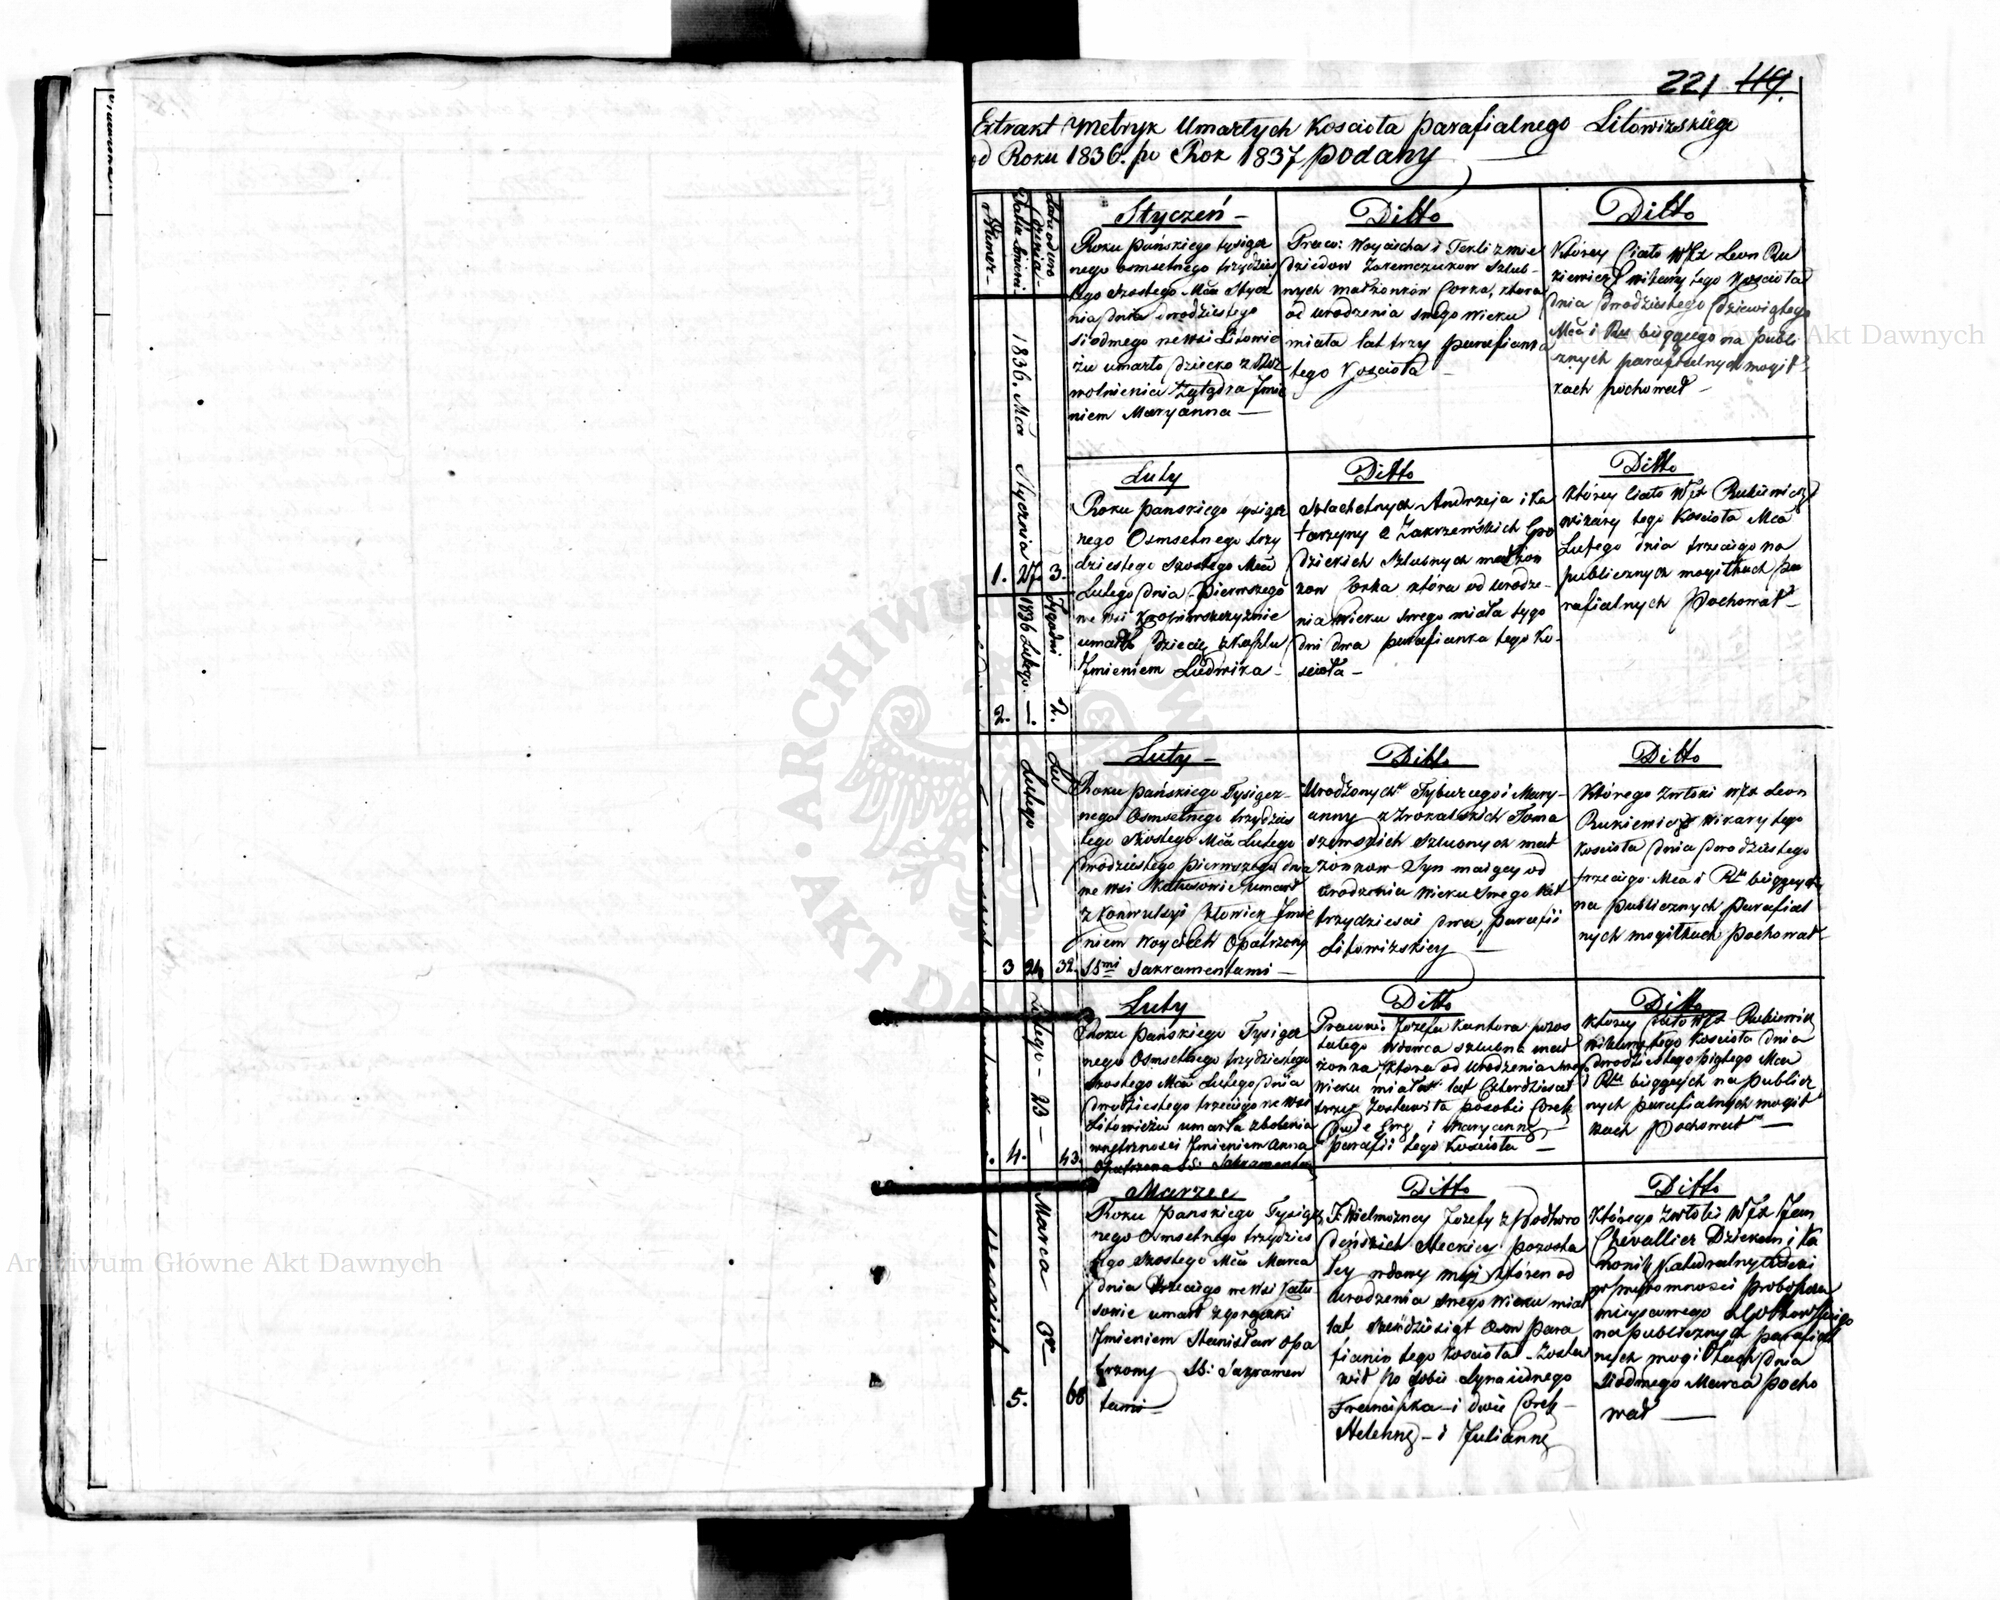 221 119.
Extrakt Metryk Umarłych Kościoła parafialnego Litowizskiego
od Roku 1836. po Rok 1837 podany
Numer
Data Śmierci
Styczeń
Roku Pańskiego tysiącz
nego osmsetnego trzydzies
tego szostego Mca Stycz
nia dnia dwódziestego
siodmego we wsi Litowi
żu umarło dziecko z
wolnienia żołądka Jmie
niem Maryanna
Ditto
Pracow: Woyciecha i Tekli z mie
dziedow Zaremczukow Szlub
nych małżonków Corka, ktora
od urodzenia swego wieku
miała lat trzy parafianka
tego Kościoła
Ditto
Którey Ciało WJX Leon Ru
kiewicz wikary tego Kościoła
dnia dwodziestego dziewiątego
Mca i Rku bieżącego na publi
cznych parafialnych mogił
kach pochował
1.
1836. Mca Stycznia 27.
3.
Luty
Roku Pańskiego tysiącz
nego Osmsetnego trzy
dziestego szostego Mca
Lutego dnia Pierwszego
we wsi
umarło dziecię z kaszlu
Jmieniem Ludwika
Ditto
Szlachetnych Andrzeja i Ka
tarzyny z Zakrzewskich Gro
dzickich Szlubnych małżon
kow Corka która od urodze
nia wieku swego miała tygo
dni dwa parafianka tego Ko
scioła
Ditto
Którey Ciało WJX Rukiewicz
wikary tego Kościoła Mca
Lutego dnia trzeciego na
publicznych mogiłkach pa
rafialnych Pochował
2.
1836 Lutego 1.
Tygodni 2.
Luty
Roku Pańskiego Tysiącz
nego Osmsetnego trzydzies
tego szostego Mca Lutego
dwódziestego pierwszego dnia
we wsi Kałusowie umarł
z Konwulsyi Człowiek Jmie
niem Woyciech Opatrzony
SSmi Sakramentami
Ditto
Urodzonych Tyburcego i Mary
anny z Toma
szewskich Szlubnych mał
żonkow Syn maiący od
urodzenia wieku swego lat
trzydzieści dwa, parafii
Litowizskiey
Ditto
Którego zwłoki WJX Leon
Rukiewicz wikary tego
Kościoła dnia dwodziestego
trzeciego Mca i Rku bieżącego
na publicznych parafial
nych mogiłkach Pochował
3
Lutego 21
32.
Luty
Roku Pańskiego Tysiącz
nego Osmsetnego trzydziestego
szostego Mca Lutego dnia
dwódziestego trzeciego we wsi
Litowiżu umarła z bolenia
wnętrzności Jmieniem Anna
Opatrzona SS: Sakramentami
Ditto
Pracow: Józefa Kantora pozos
tałego wdowca szlubna mał
żonka, ktora od urodzenia swego
wieku miała lat Czterdzieści
trzy zostawiła po sobie Corek
Dwie i Maryannę
parafii tego Kościoła
Ditto
Którey Ciało WJX Rukiewicz
wikary tego Kościoła dnia
dwodziestego piątego Mca
i Rku bieżących na publicz
nych parafialnych mogił
kach Pochował
4.
Lutego 23
43.
Marzec
Roku Pańskiego Tysiącz
nego Osmsetnego trzydzies
tego szostego Mca Marca
dnia trzeciego we wsi Kału
sowie umarł z gorączki
Jmieniem Stanisław opa
trzony SS: Sakramen
tami
Ditto
J. Wielmożney Józefy z Podhoro
deńskich Steckiey pozosta
łey wdowy mąż któren od
urodzenia swego wieku miał
lat sześćdziesiąt osm para
fianin tego Kościoła Zosta
wił po sobie Syna iednego
Franciszka i dwie Corek
Helenę i Juliannę
Ditto
Którego zwłoki WJX Jan
Chevallier Dziekan i Ka
nonik Katedralny
w przytomności proboszcza
mieyscowego
na publicznych parafial
nych mogiłkach dnia
siodmego Marca pocho
wał
5.
Marca 3
68
Archiwum Główne Akt Dawnych